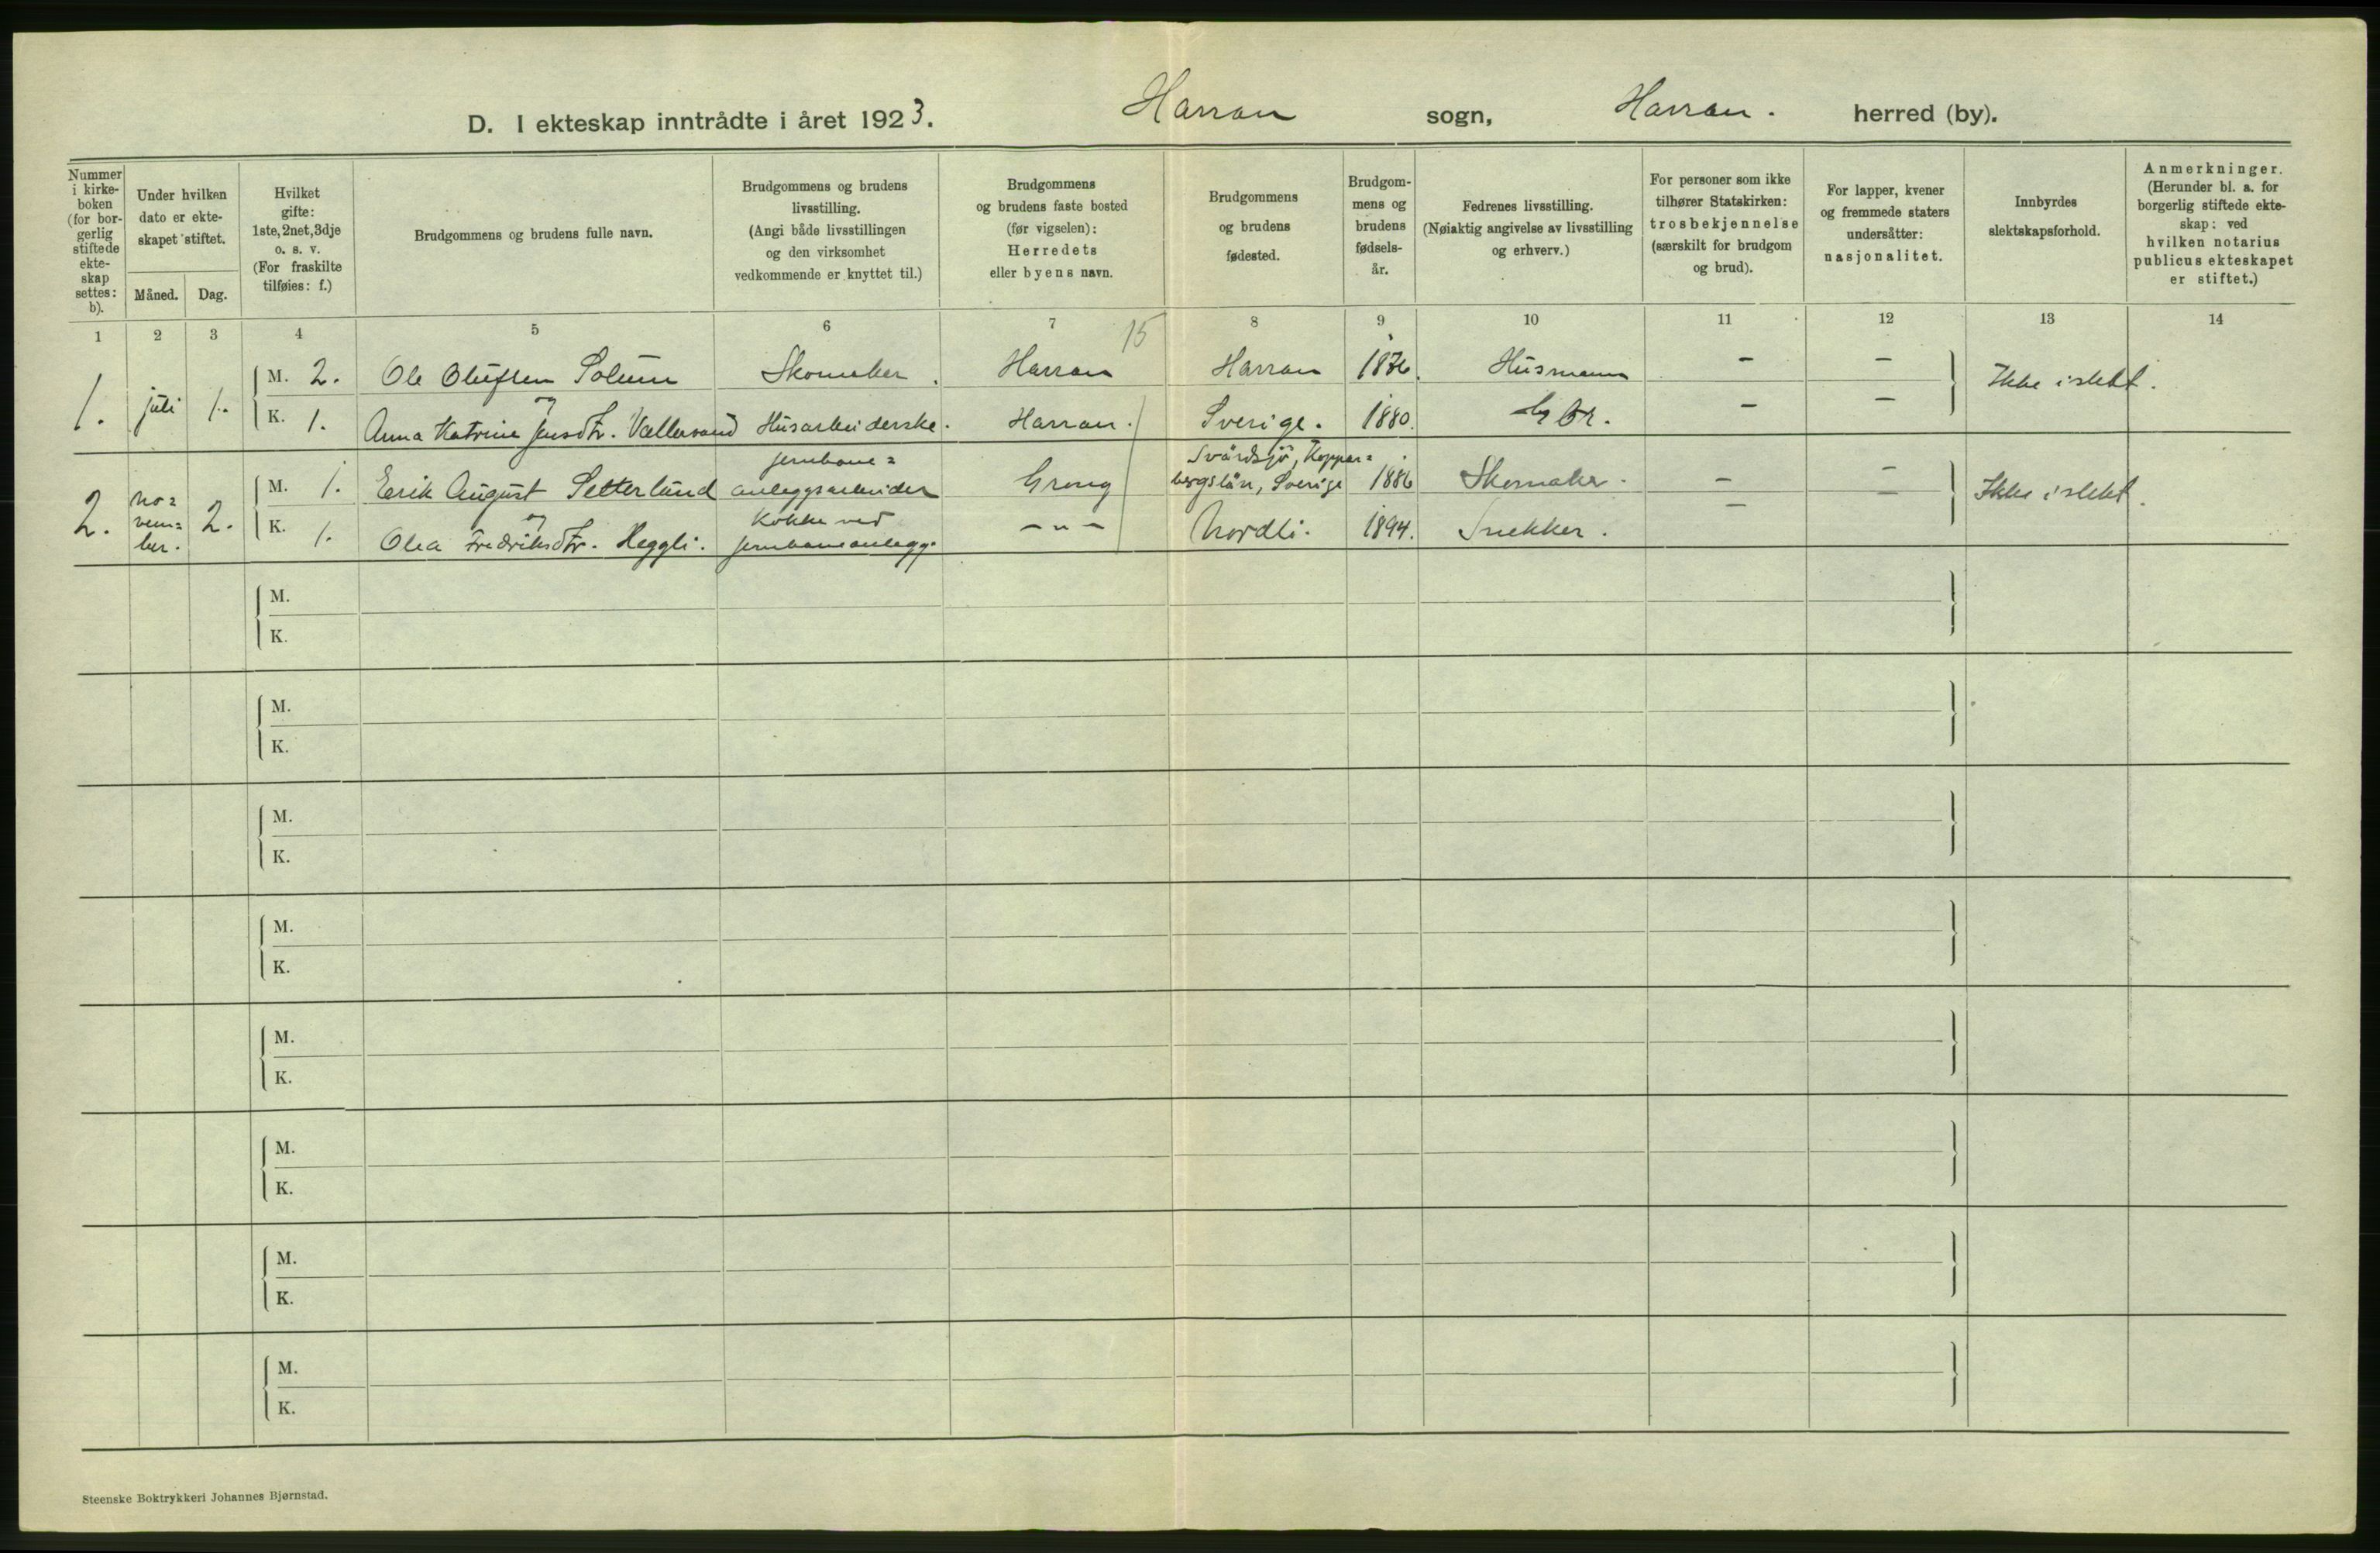 D. I ekteskap inntrådte i året 1923. Harran sogn, Harran. herred (by).
Nummer i kirke-boken (for bor-gerlig stiftede ekte-skap settes: b).
Under hvilken dato er ekte-skapet stiftet.
Måned. Dag.
Hvilket gifte: 1ste, 2net, 3dje o. s. v. (For fraskilte tilføies: f.)
Brudgommens og brudens fulle navn.
Brudgommens og brudens livsstilling. (Angi både livsstillingen og den virksomhet vedkommende er knyttet til.)
Brudgommens og brudens faste bosted (før vigselen): Herredets eller byens navn.
Brudgommens og brudens fødested.
Brudgom-mens og brudens fødsels-år.
Fedrenes livsstilling. (Nøiaktig angivelse av livsstilling og erhverv.)
For personer som ikke tilhører Statskirken: trosbekjennelse (særskilt for brudgom og brud).
For lapper, kvener og fremmede staters undersåtter: nasjonalitet.
Innbyrdes slektskapsforhold.
Anmerkninger. (Herunder bl. a. for borgerlig stiftede ekte-skap: ved hvilken notarius publicus ekteskapet er stiftet.)
1 2 3 4 5 6 7 8 9 10 11 12 13 14
15
1. juli 1. M. 2. Ole Olufsen Solum Skomaker. Harran Harran 1876. Husmann – – Ikke i slekt.
K. 1. og Anna Katrine Jensdtr. Vallervand Husarbeiderske. Harran. Sverige. 1880. Gbr. – –
2. no= vem= ber. 2. M. 1. Erik August Setterlund jernbane= anleggsarbeider Grong Svärdsjö, Koppar= bergslän, Sverige 1886 Skomaker. – – Ikke i slekt.
K. 1. og Olea Fredriksdtr. Heggli. Kokke ved jernbaneanlegg. – " – Nordli. 1894. Snekker. – –
M.
K.
M.
K.
M.
K.
M.
K.
M.
K.
M.
K.
M.
K.
M.
K.
Steenske Boktrykkeri Johannes Bjørnstad.